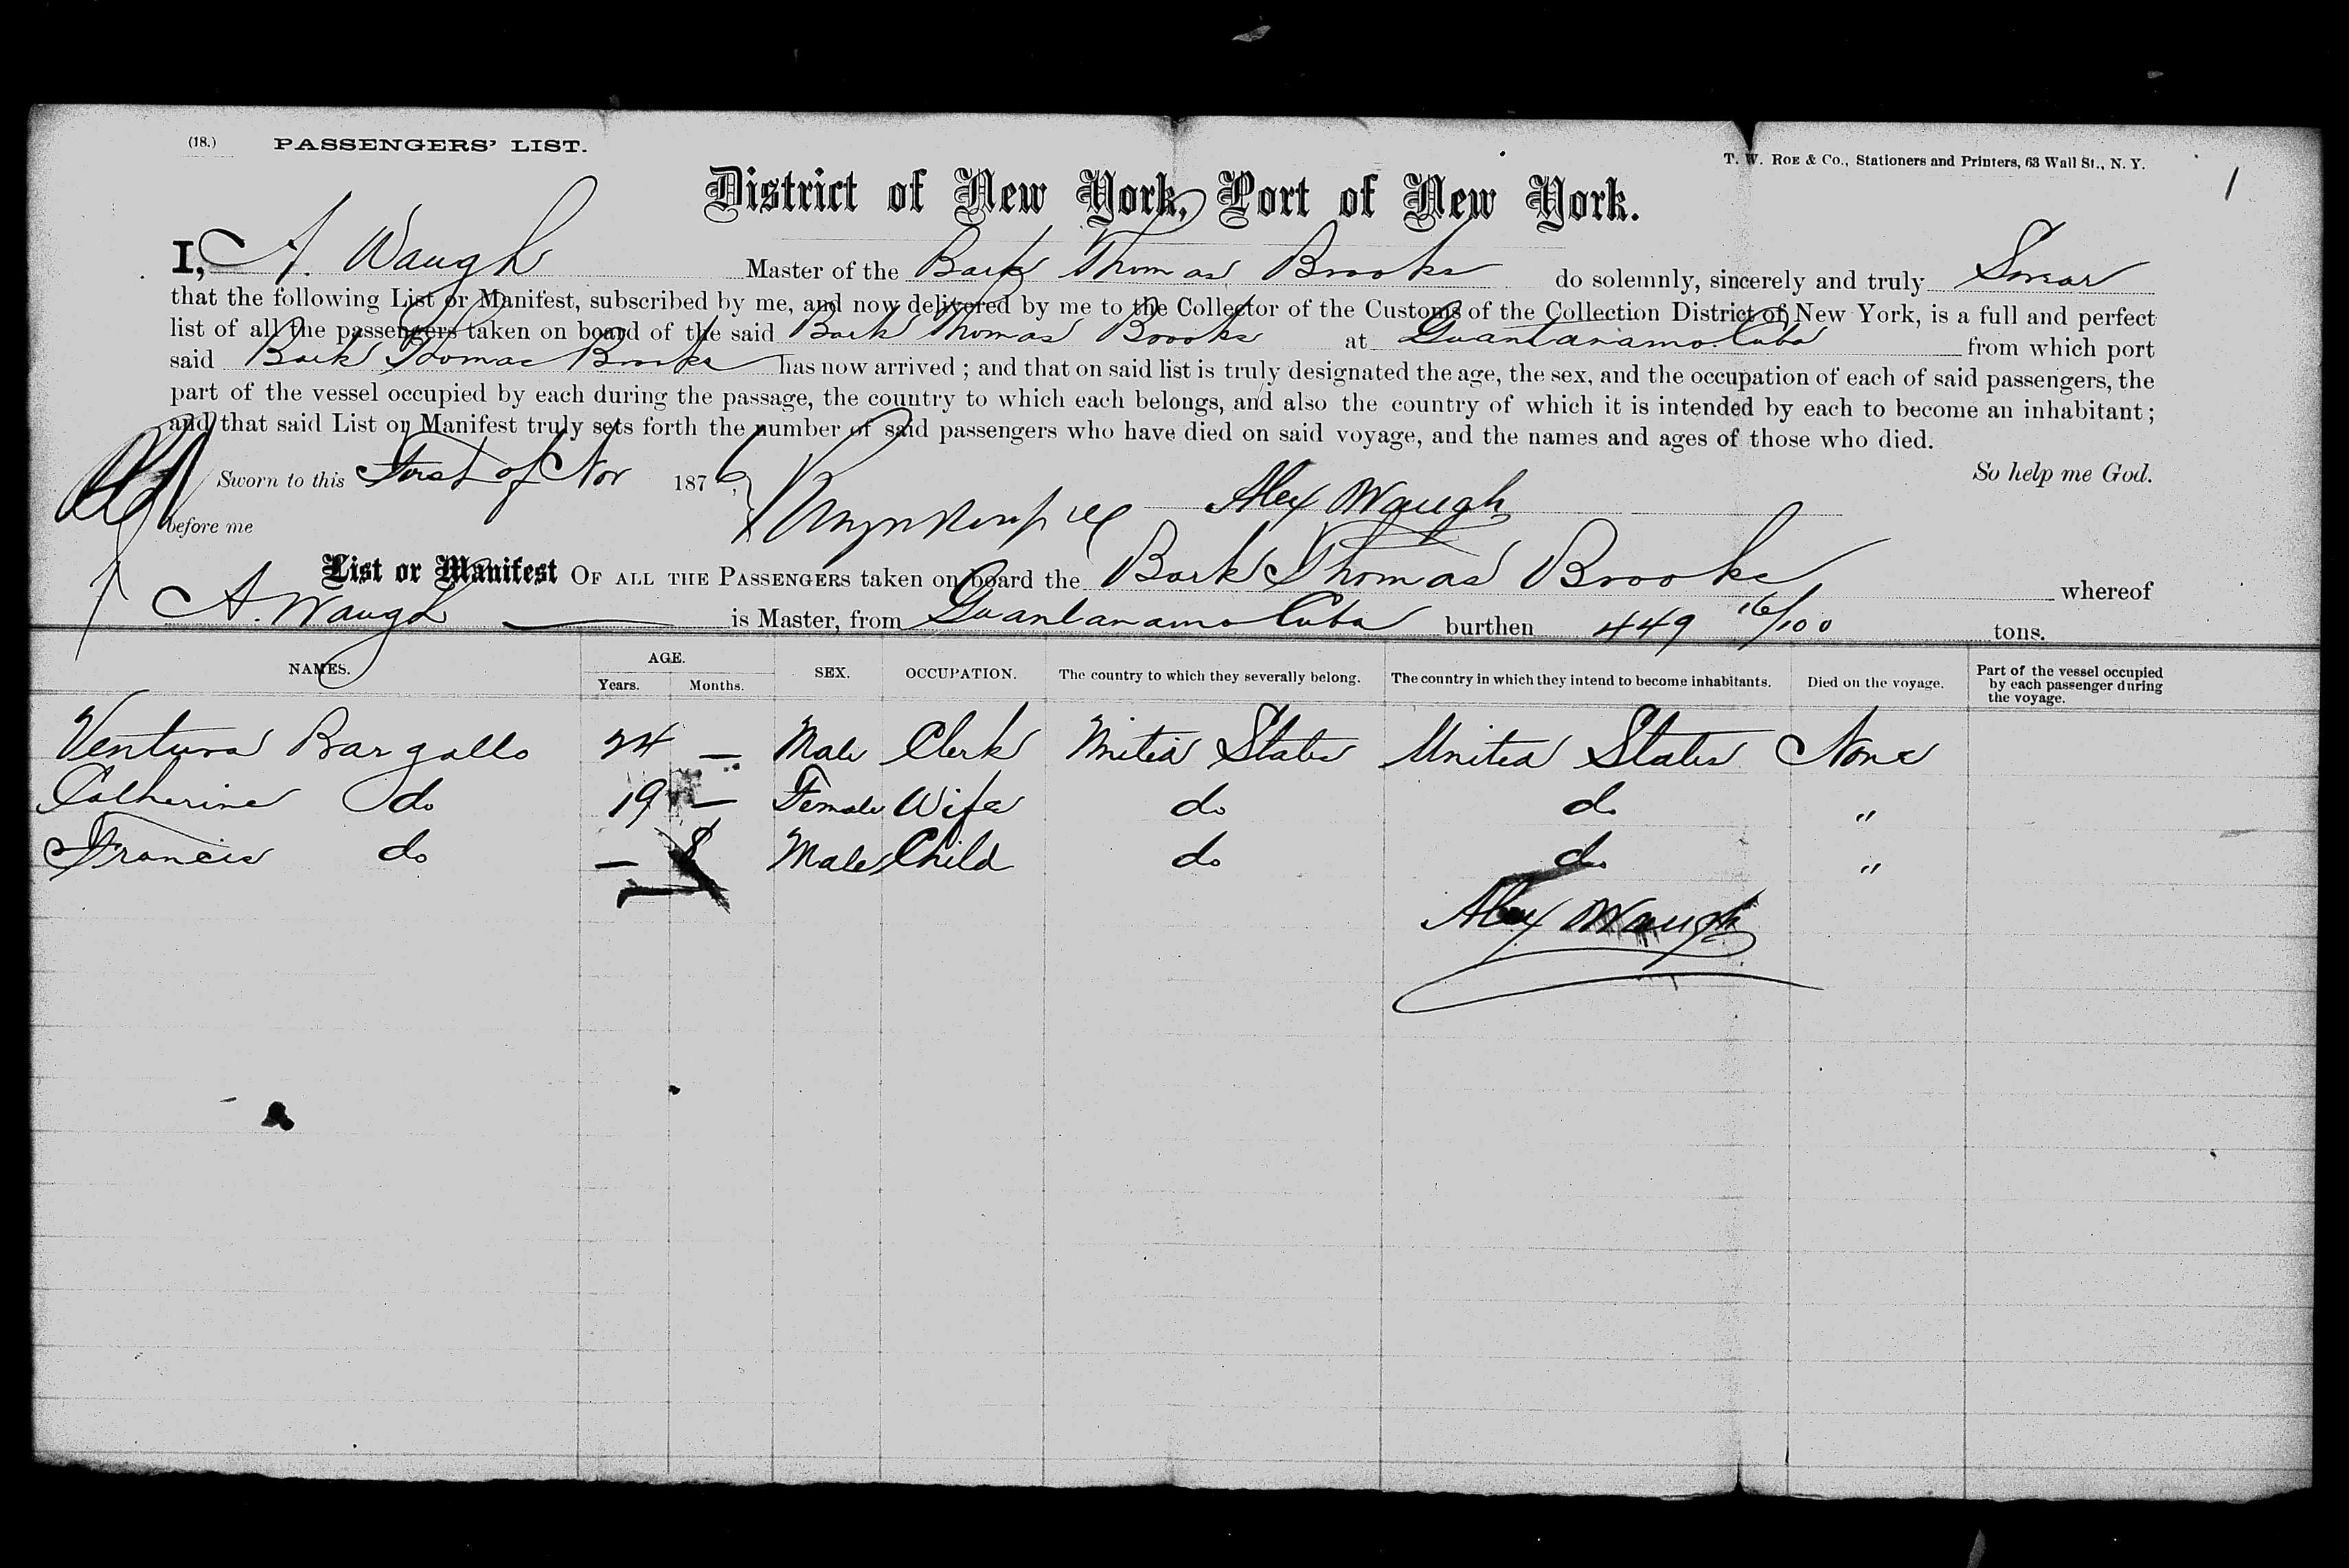 (18.) PASSENGERS' LIST.
T. W. ROE & CO., Stationers and Printers, 63 Wall St., N. Y.
1
District of New York, Port of New York.
I, A. Waugh Master of the Bark Thomas Brooks do solemnly, sincerely and truly Swear
that the following List or Manifest, subscribed by me, and now delivered by me to the Collector of the Customs of the Collection District of New York, is a full and perfect
list of all the passengers taken on board of the said Bark Thomas Brooks at Guantanamo Cuba from which port
said Bark Thomas Brooks has now arrived ; and that on said list is truly designated the age, the sex, and the occupation of each of said passengers, the
part of the vessel occupied by each during the passage, the country to which each belongs, and also the country of which it is intended by each to become an inhabitant ;
and that said List or Manifest truly sets forth the number of said passengers who have died on said voyage, and the names and ages of those who died.
So help me God.
Sworn to this First of Nov 1876,
before me
Alex Waugh
List or Manifest OF ALL THE PASSENGERS taken on board the Bark Thomas Brooks whereof
A. Waugh is Master, from Guantanamo Cuba burthen 449 16/100 tons.
NAMES. AGE. Years. Months. SEX. OCCUPATION. The country to which they severally belong. The country in which they intend to become inhabitants. Died on the voyage. Part of the vessel occupied by each passenger during the voyage.
Ventura Bargallo 24 — Male Clerk United States United States None
Catherine do 19 — Female Wife do do "
Francis do — 8 Male Child do do "
Alex Waugh